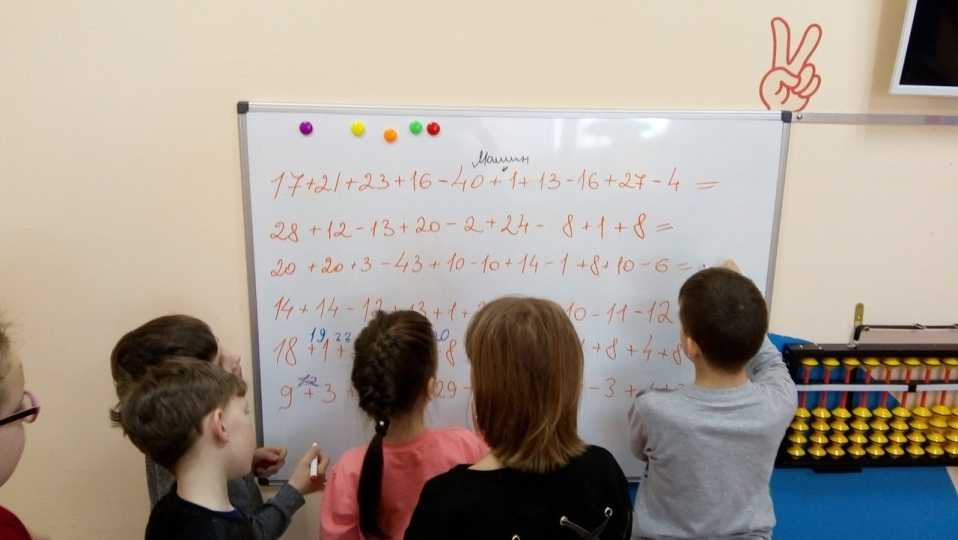 Машин
17+21+23+16-40+1+13-16+27-4=
28+12-13+20-2+24-8+1+8=
20+20+3-43+10-10+14-1+8+10-6=
14+14-12+13+1+ 10-11-12
19 22 20
18+1+ 8 +8+4+8
12
9+3+ 29 -3+